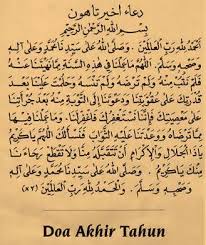 دعاء اخير تاهون
بسم الله الرحمن الرحيم
الحمد لله رب العالمين . وصلى الله على سيدنا محمد وعلى آله
وصحبه وسلم . اللهم ما عملنا في هذه السنة مما نهيتنا عنه
فلم نتب منه ولم ترضه ولم تنسه وحلمت علينا بعد
قدرتك على عقوبتنا ودعوتنا إلى التوبة منه بعد جرأتنا
على معصيتك فإنا نستغفرك فاغفر لنا . وما عملنا فيها
مما ترضاه ووعدتنا عليه الثواب فنسألك اللهم يا كريم
يا ذا الجلال والإكرام أن تتقبله منا ولا تقطع رجاءنا
منك يا كريم . وصلى الله على سيدنا محمد وعلى آله
وصحبه وسلم . والحمد لله رب العالمين (×٣)
Doa Akhir Tahun